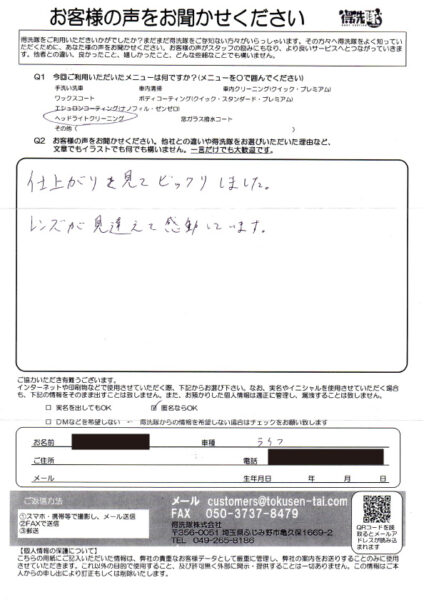 お客様の声をお聞かせください 得洗隊
得洗隊をご利用いただきいかがでしたか？まだまだ得洗隊をご存知ない方々がいらっしゃいます。その方々へ得洗隊をよく知って
いただくために、あなた様の声をお聞かせください。お客様の声がスタッフの励みにもなり、より良いサービスへとつながっていきま
す。他者との違い、良かったこと、嬉しかったこと、どんな些細なことでも構いません。
Q1 今回ご利用いただいたメニューは何ですか？(メニューを○で囲んでください)
手洗い洗車 車内清掃 車内クリーニング(クイック・プレミアム)
ワックスコート ボディコーティング(クイック・スタンダード・プレミアム)
エシュロンコーティング(ナノフィル・ゼンゼロ)
ヘッドライトクリーニング 窓ガラス撥水コート
その他(
Q2 お客様の声をお聞かせください。他社との違いや得洗隊をお選びいただいた理由など、
文章でもイラストでも何でも構いません。一言だけでも大歓迎です。
仕上がりを見てビックリしました。
レンズが見違えて感動しています。
ご協力いただき有難うございます。
インターネットや印刷物などで使用させていただく際、下記からお選び下さい。なお、実名やイニシャルを使用させていただく場合
も、下記の情報をそのまま出すことは致しません。また、お預かりした個人情報は適正に管理し、漏洩することは致しません。
□ 実名を出してもOK ☑ 匿名ならOK
□ DMなどを希望しない ← 得洗隊からの情報を希望しない場合はチェックをお願い致します
お名前 車種 ライフ
ご住所 電話
メール 生年月日 年 月 日
ご返信方法
①スマホ・携帯等で撮影し、メール送信
②FAXで送信
③郵送
メール customers@tokusen-tai.com
FAX 050-3737-8479
得洗隊株式会社
〒356-0051 埼玉県ふじみ野市亀久保1669-2
TEL 049-265-8186
QRコードを読
取るとメールア
ドレスが読み込
まれます
【個人情報の保護について】
こちらの用紙にご記入いただいた情報は、弊社の貴重なお客様データとして厳重に管理し、弊社の案内をお送りすることのみに使用
させていただきます。これ以外の目的で使用すること、及び許可無く外部に開示・提供することは一切ありません。この情報はご本
人からの申し出により訂正もしくは削除いたします。